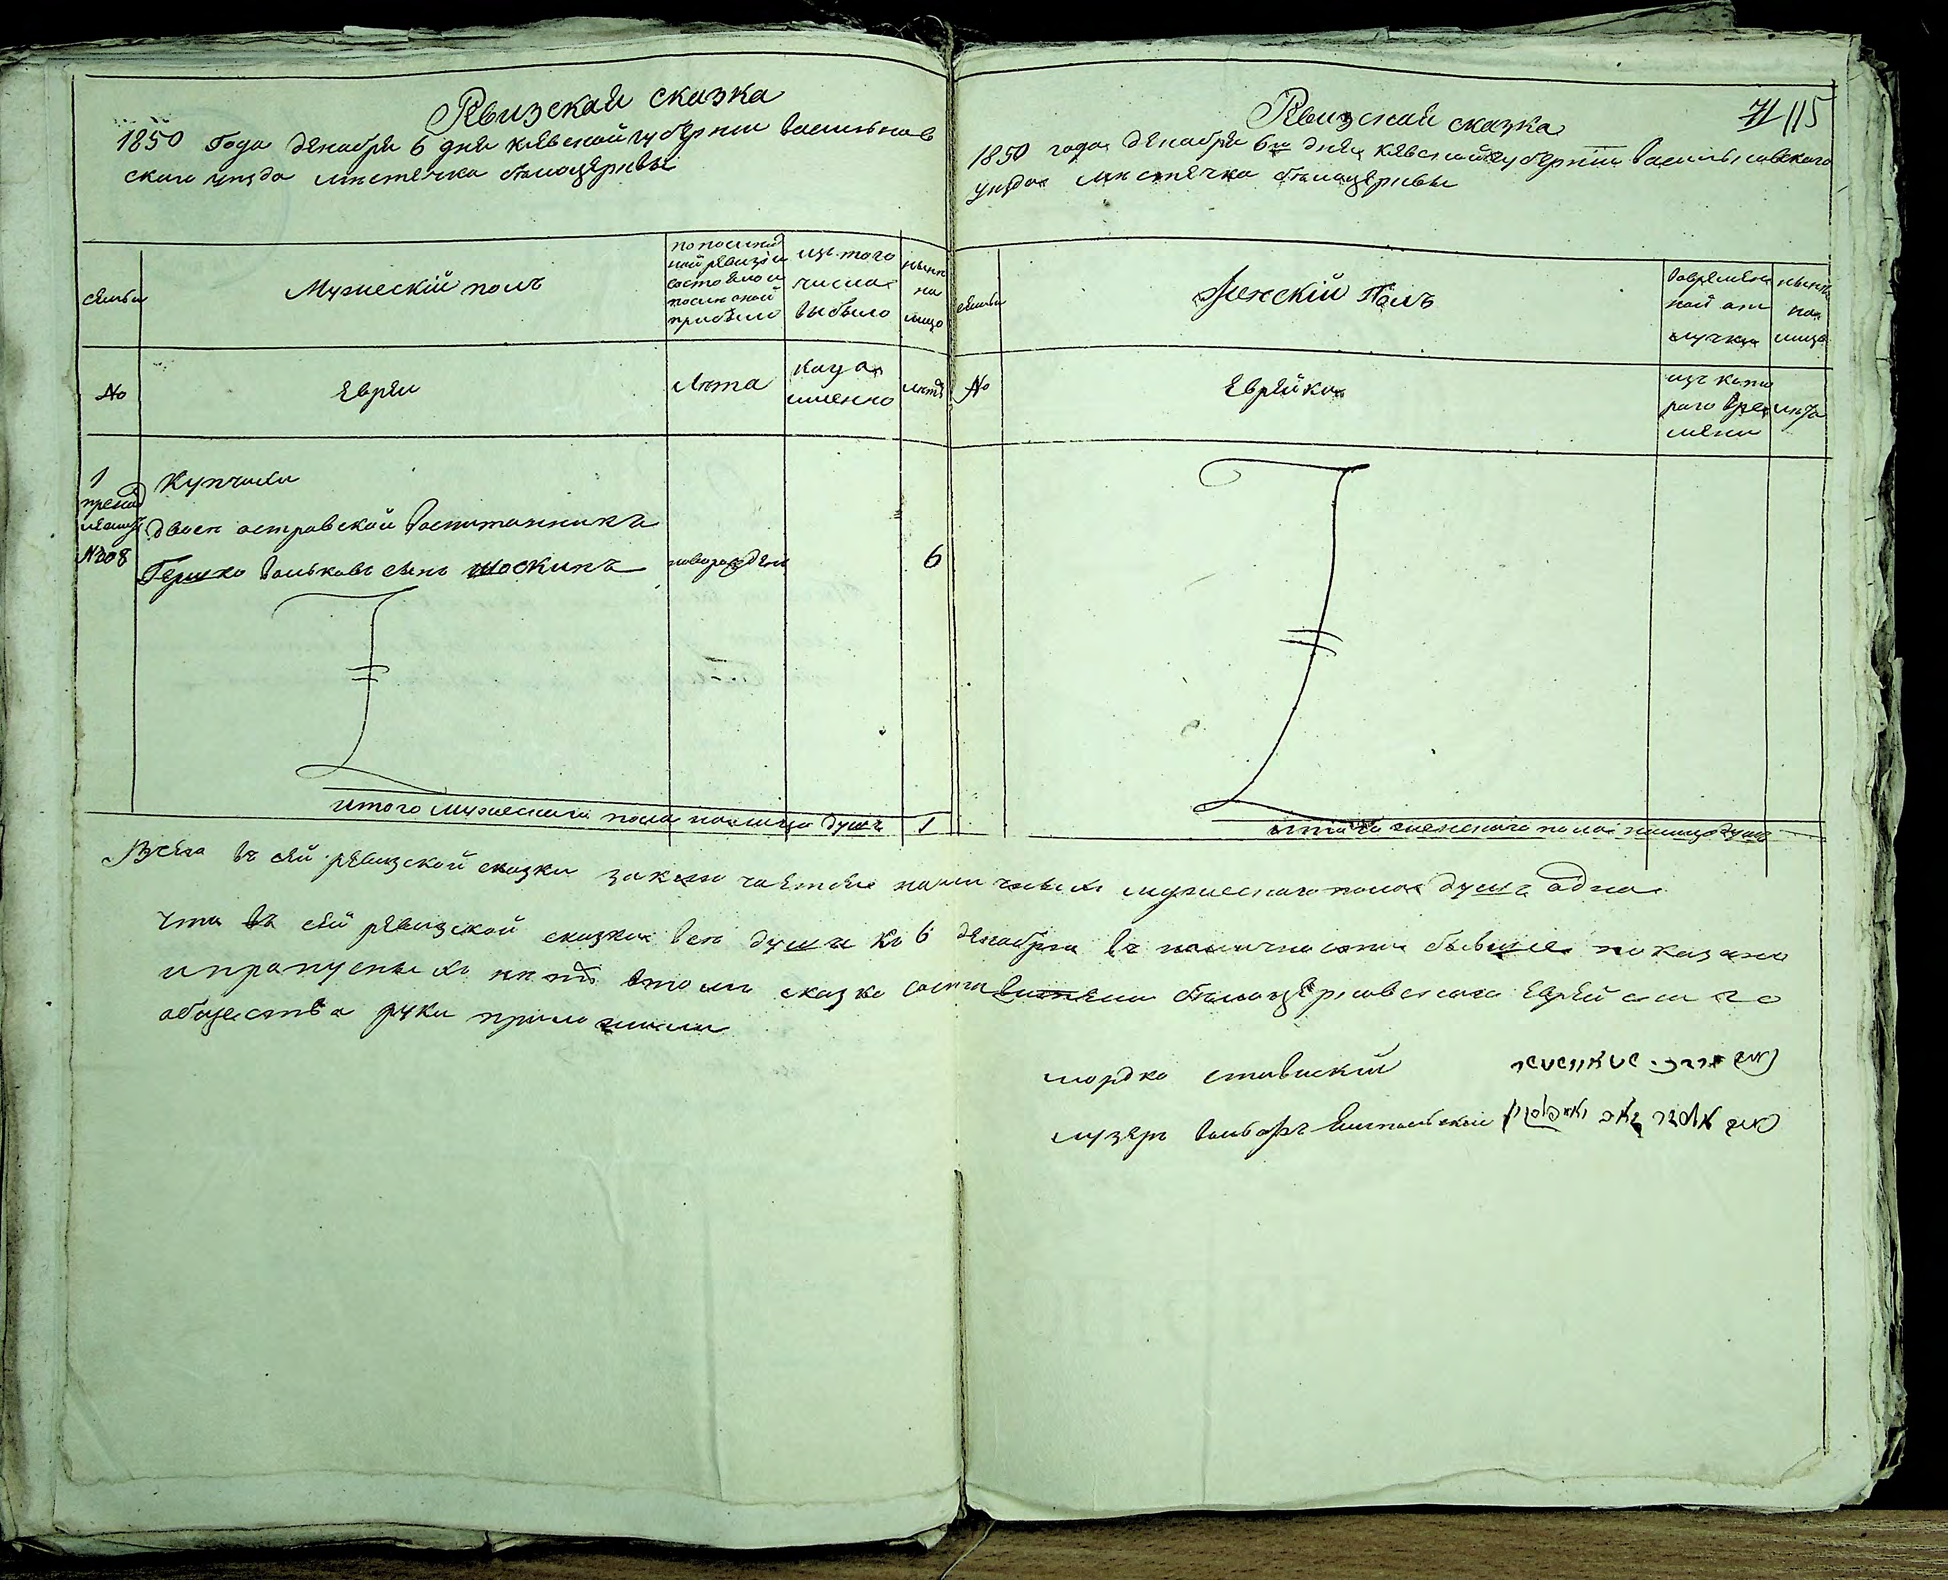 Ревизская сказка
1850 Года декабря 6 дня киевской губернии васильков
скаго уезда местечка белоцеркви
семьи
Мужескій полъ
по послед
ней ревизіи
состояло и
после оной
прибыло
изъ того
числа
выбыло
ныне
на
лицо
№
Евреи
лета
когда
именно
лета
1
Купчихи
двоси островской воспитанникъ
№208
Гершко вольковъ сынъ шоскинъ новорожден 6
итого мужескаго пола налицо душъ 1
Ревизская сказка
71 115
1850 года декабря 6го дня киевской губерніи васильковскаго
уезда местечка белоцеркви
семьи
Женскій Полъ
во времен
ной от
лучке
ныне
на
лицо
№
Еврейки
изъ кото
раго вре
мени
лета
итого женскаго пола налицо душъ
Всего въ сей ревизской сказки заключается наличныхъ мужескаго пола душъ одна
что въ сей ревизской сказки все души къ 6 декабря въ наличности бывшие показано
и пропускныхъ нетъ втомъ сказко составители белоцерковскаго еврейскаго
общества руки приложили
мордко ставискій
лузеръ вольфъ